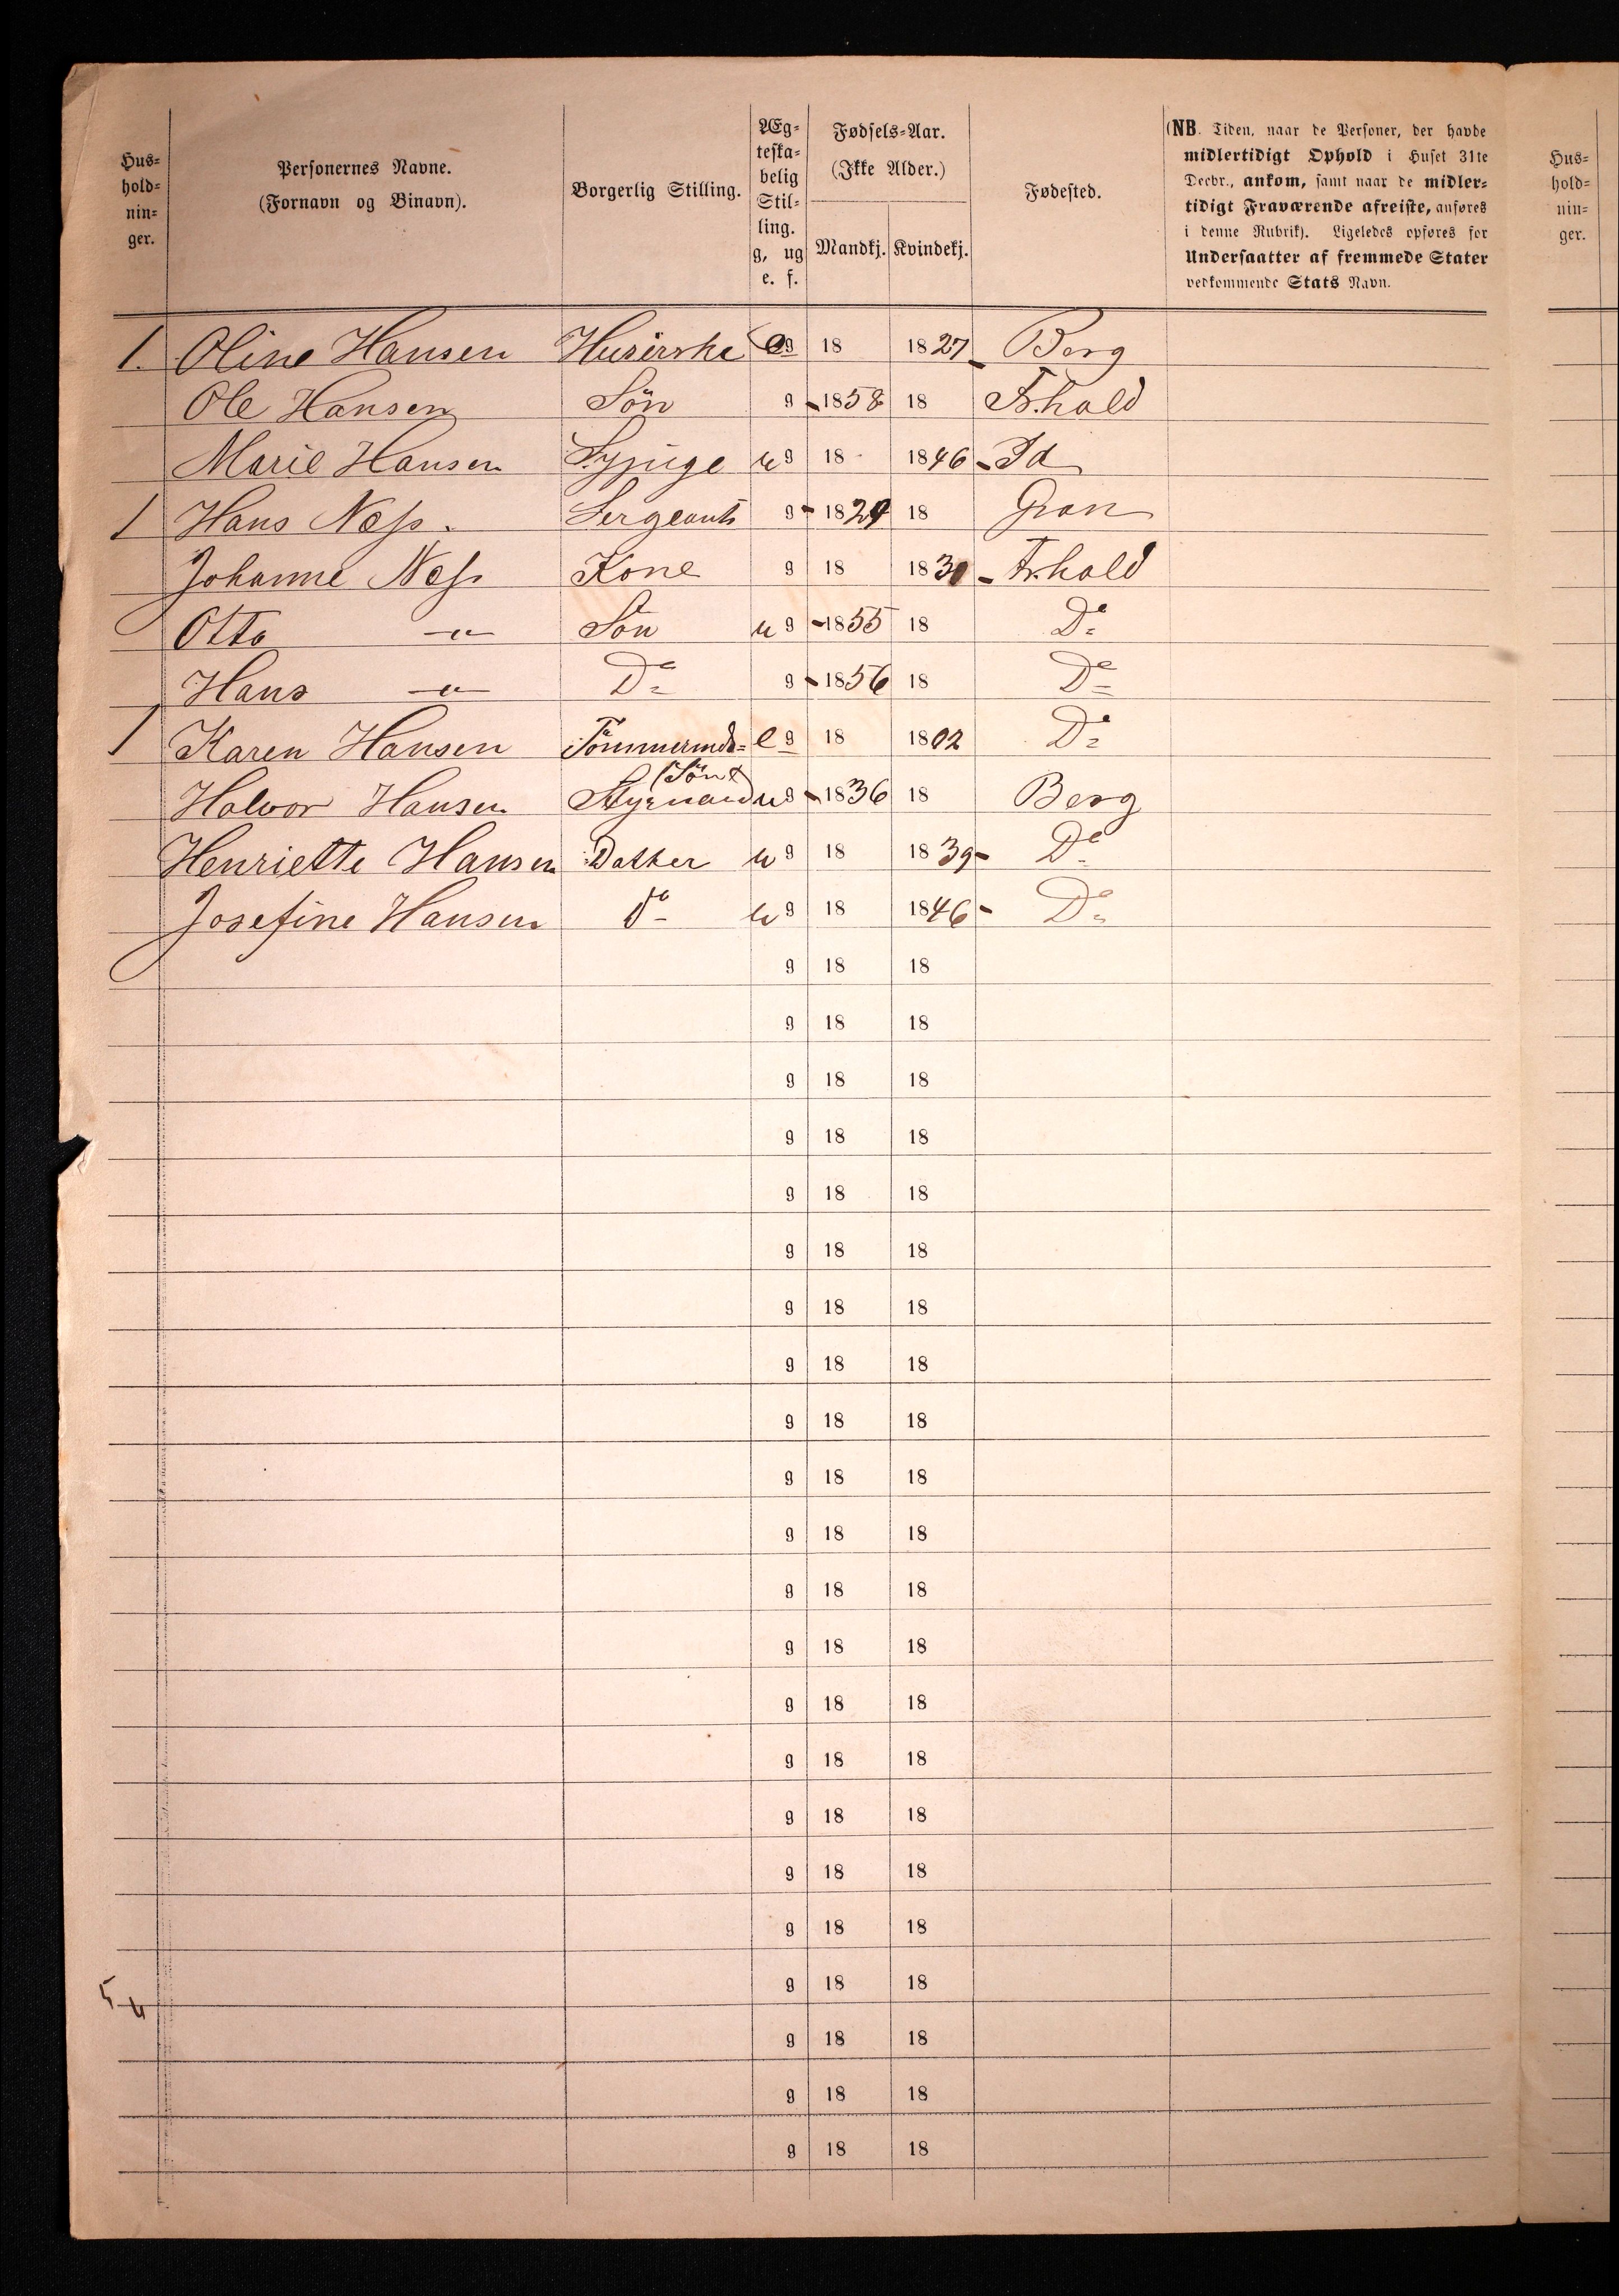 Hus-
hold-
nin-
ger.
Personernes Navne.
(Fornavn og Binavn).
Borgerlig Stilling.
Æg-
teska-
belig
Stil-
ling.
g, ug
e. f.
Fødsels-Aar.
(Ikke Alder.)
Mandkj. Kvindekj.
Fødested.
(NB. Tiden, naar de Personer, der havde
midlertidigt Ophold i Huset 31te
Decbr., ankom, samt naar de midler-
tidigt Fraværende afreiste, anføres
i denne Rubrik). Ligeledes opføres for
Undersaatter af fremmede Stater
vedkommende Stats Navn.
Hus-
hold-
nin-
ger.
1. Oline Hansen Husierske e g 18 1827 Berg
Ole Hansen Søn g 1858 18 Fr.hald
Marie Hansen Sypige u g 18 1846 Id
1 Hans Ness. Sergeant g 1829 18 Gran
Johanne Ness Kone g 18 1830 Fr.hald
Otto -"- Søn u g 1855 18 Do
Hans -"- Do g 1856 18 Do
1 Karen Hansen Tömmermds= e g 18 1802 Do
Halvor Hansen (Sön) Styrmand u g 1836 18 Berg
Henriette Hansen Datter u g 18 1839 Do
Josefine Hansen do u g 18 1846 Do
g 18 18
g 18 18
g 18 18
g 18 18
g 18 18
g 18 18
g 18 18
g 18 18
g 18 18
g 18 18
g 18 18
g 18 18
g 18 18
g 18 18
g 18 18
g 18 18
g 18 18
g 18 18
g 18 18
g 18 18
g 18 18
g 18 18